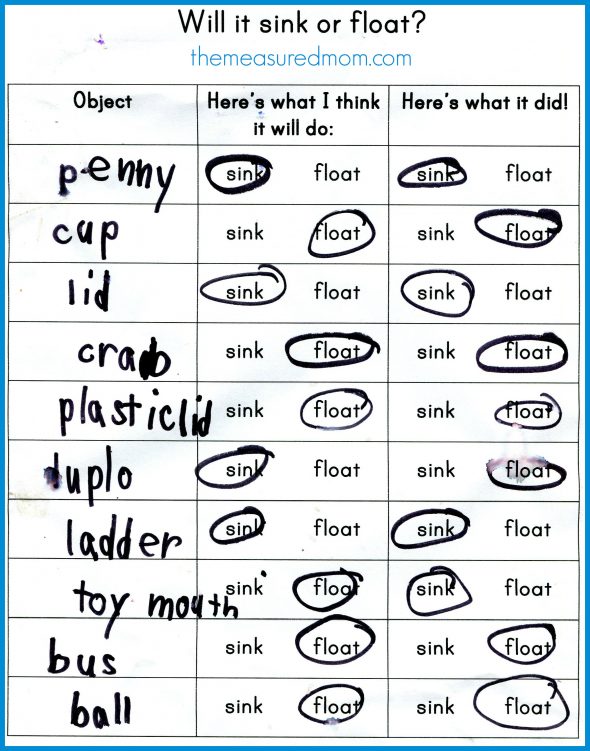 Will it sink or float?
themeasuredmom.com
Object Here's what I think it will do: Here's what it did!
penny sink float sink float
cup sink float sink float
lid sink float sink float
crab sink float sink float
plastic lid sink float sink float
duplo sink float sink float
ladder sink float sink float
toy mouth sink float sink float
bus sink float sink float
ball sink float sink float